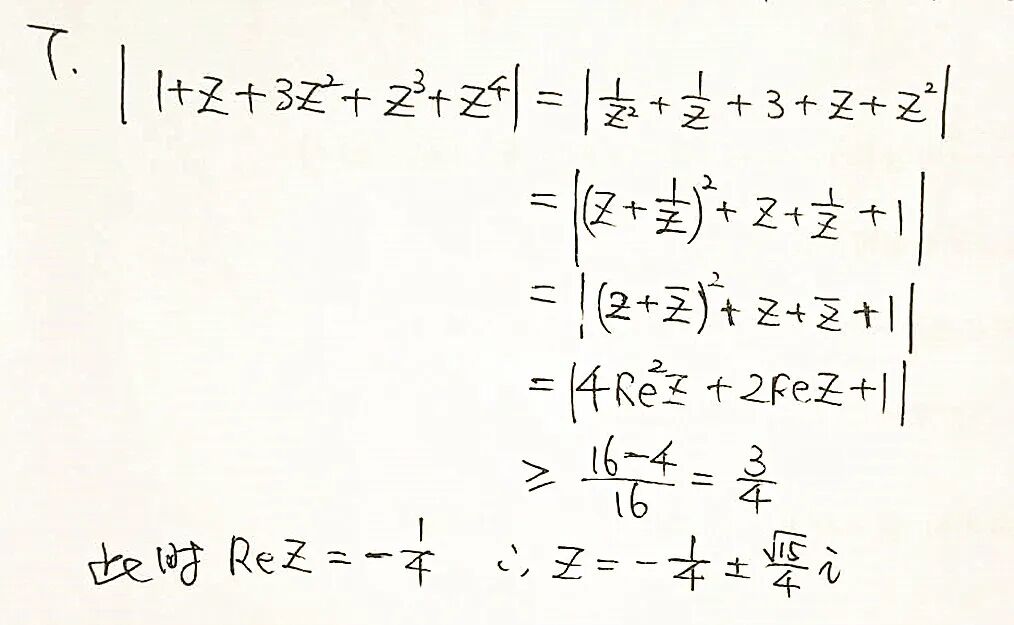 7. |1+z+3z²+z³+z⁴| = |1/z² + 1/z + 3 + z + z²|
= |(z + 1/z)² + z + 1/z + 1|
= |(z + z̅)² + z + z̅ + 1|
= |4Re²z + 2Rez + 1|
≥ (16-4)/16 = 3/4
此时 Re z = -1/4 ∴ z = -1/4 ± √15/4 i